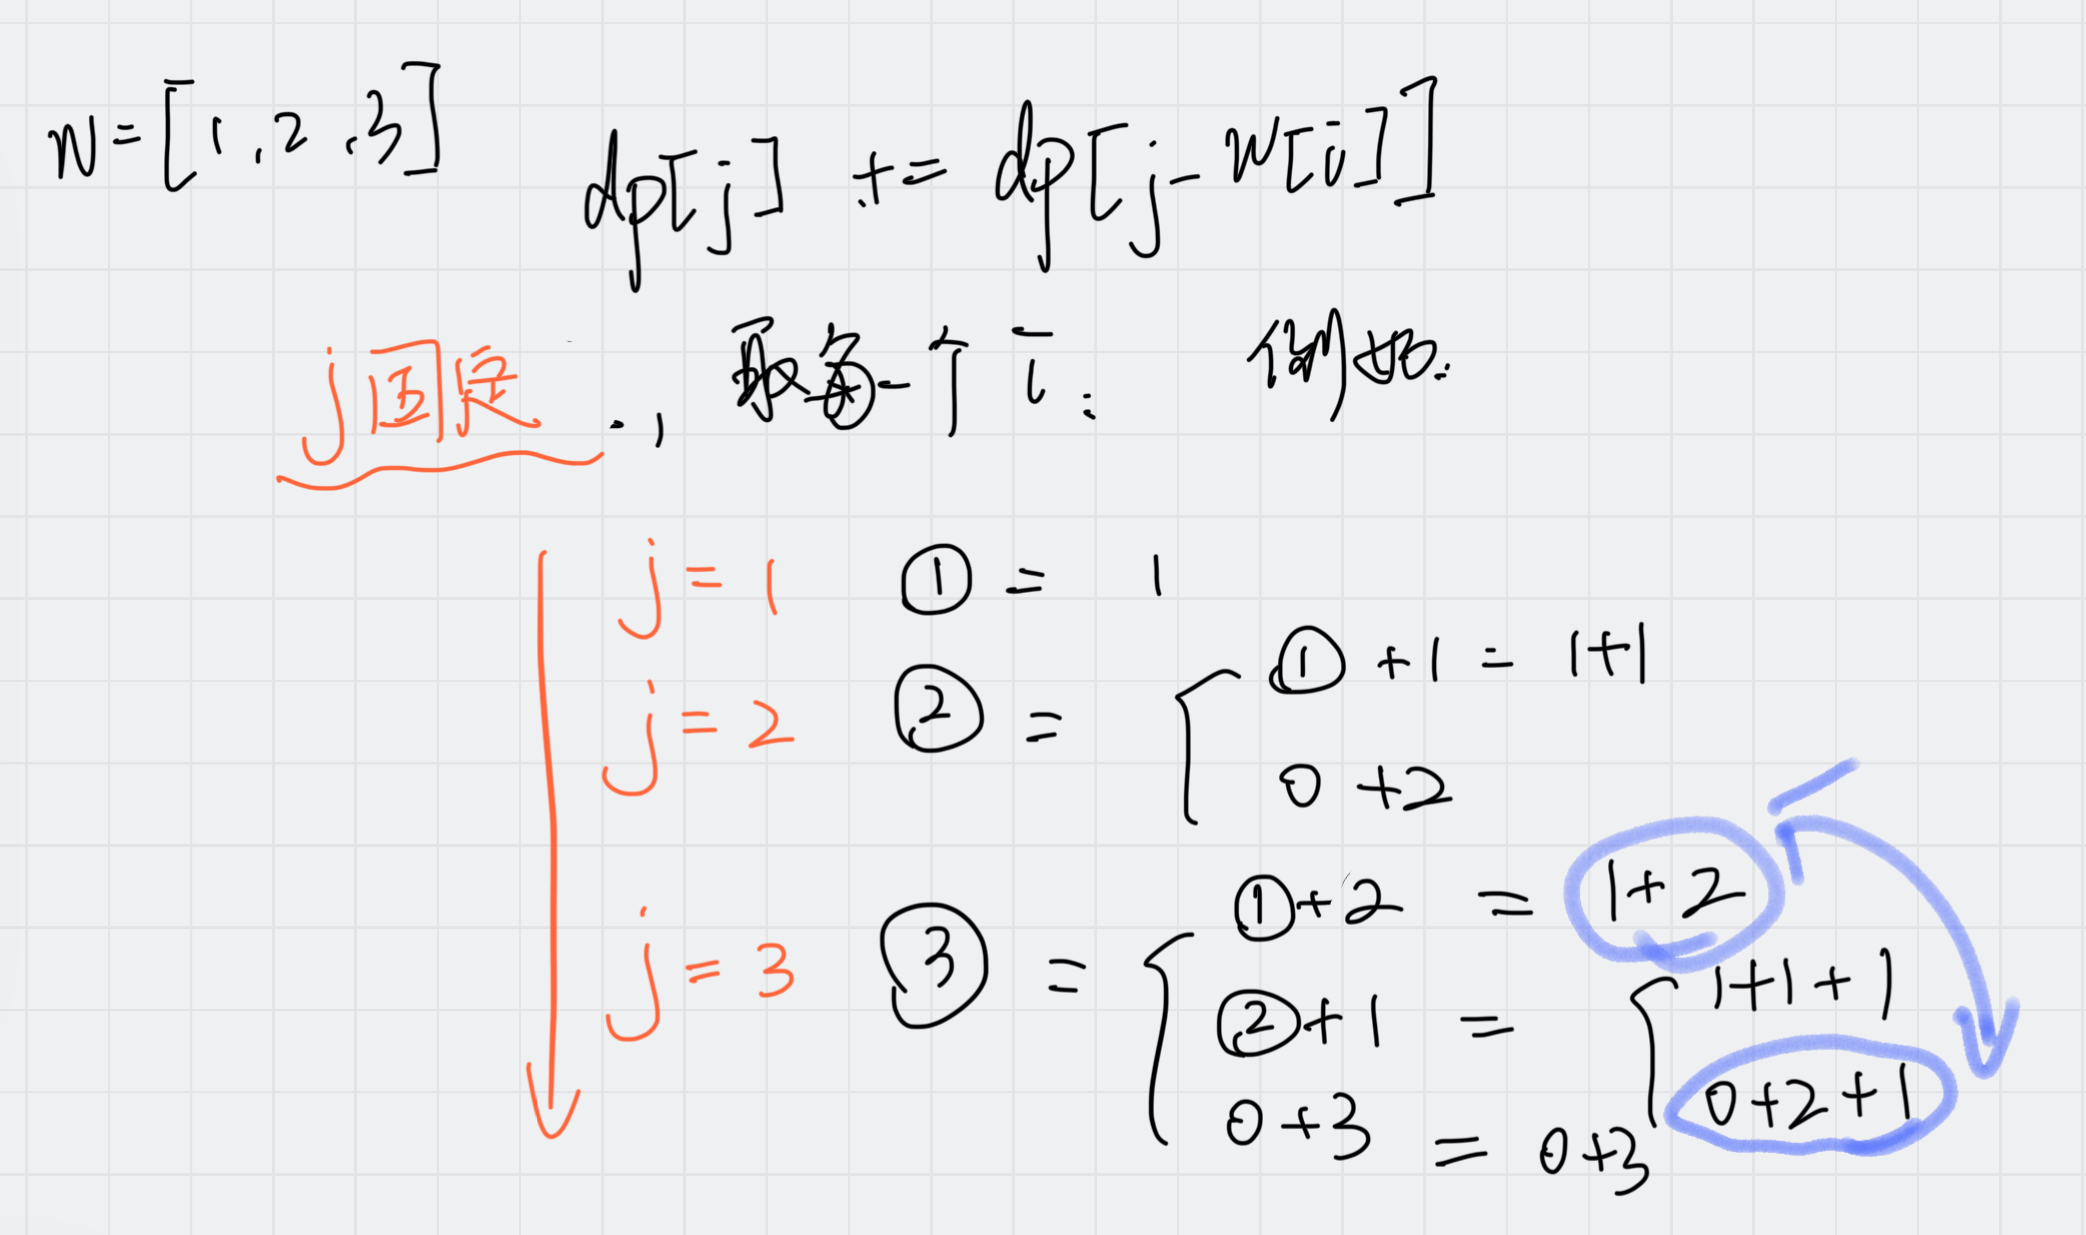 W=[1,2,3]
dp[j] += dp[j-W[i]]
j固定.,取每一个i: 例如:
j=1 ① = 1
j=2 ② = { ①+1 = 1+1
0+2
j=3 ③ = { ①+2 = 1+2
②+1 = { 1+1+1
0+2+1
0+3 = 0+3